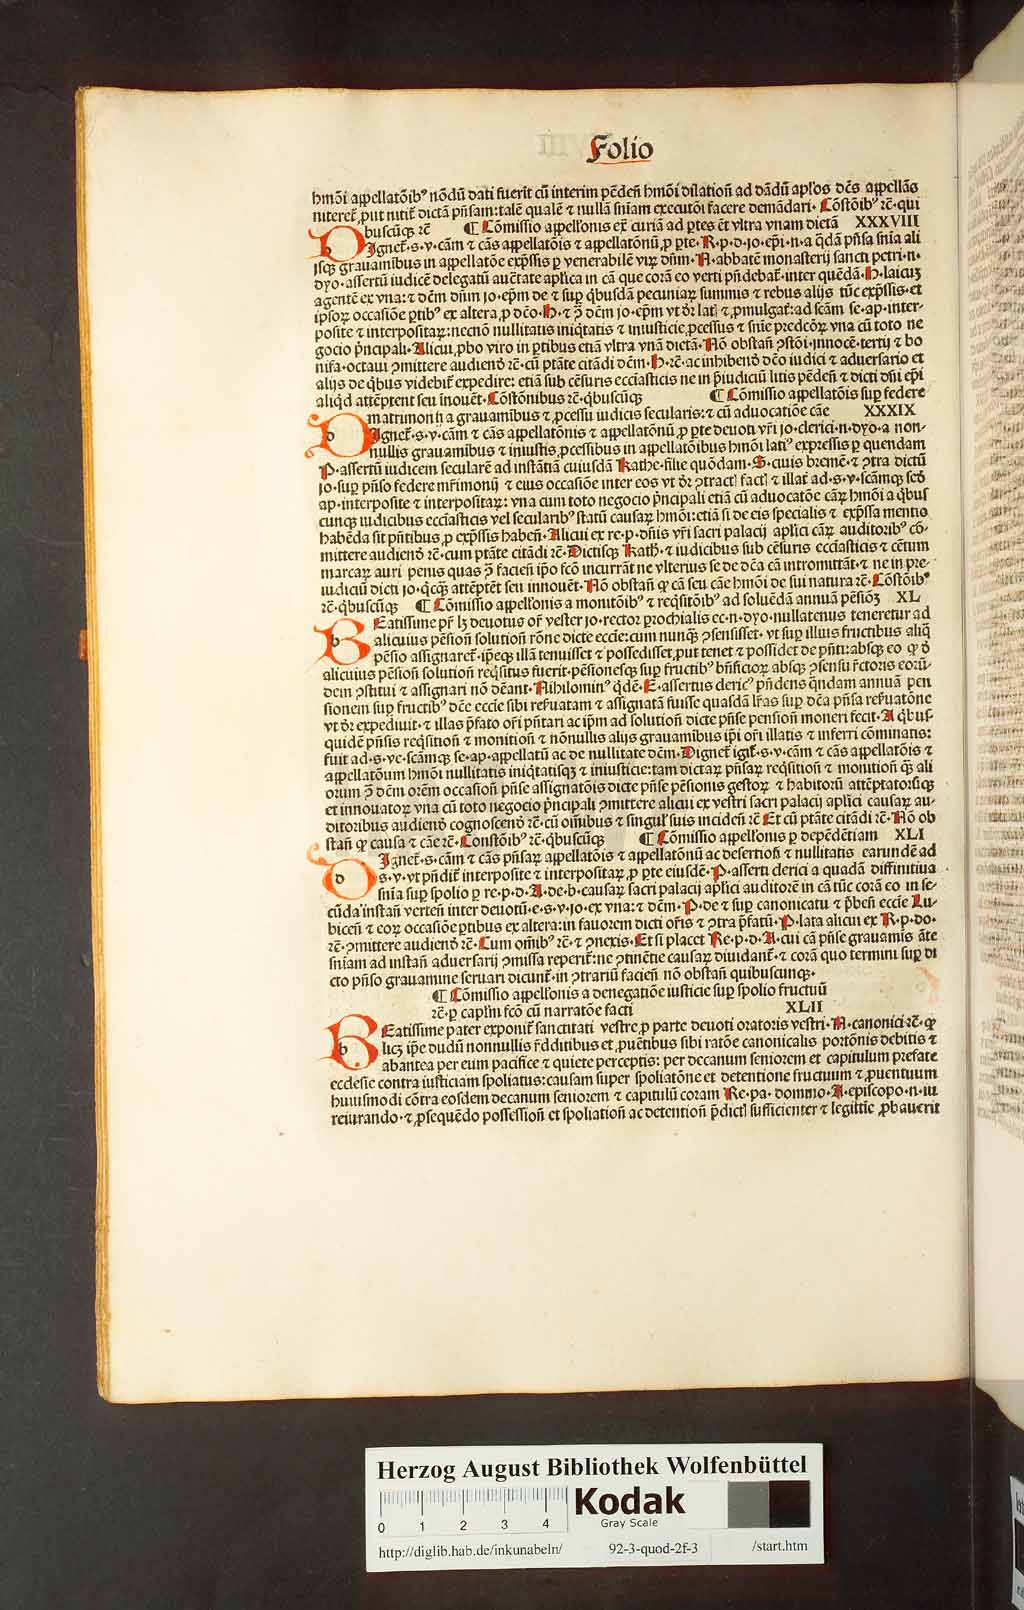 Folio
hmōi appellatōibꝰ nōdū dati fuerit cū interim pēdeñ hmōi dilatioñ ad dādū apl'os dc̄s appellās
niteret᷑ ꝓut nitit᷑ dictā pn̄sam: talē qualē ⁊ nullā sn̄iam executōi facere demādari. Cōstōibꝰ rc̄. qui
buscūqꝫ rc̄ ¶ Cōmissio appell'onis ex̄ curiā ad ptes et̄ vltra vnam dictā XXXVIII
Dignet᷑. s. v. cām ⁊ cās appellatōis ⁊ appellatōnū, ꝓ pte. R. p. d. jo. ep̄i. n. a q̄dā pn̄sa sn̄ia ali
isqꝫ grauamībus in appellatōe exp̄ssis p venerabilē virꝫ dn̄m. N. abbatē monasterij sancti petri. n.
dyo. assertū iudicē delegatū auc̄tate aplica in cā que corā eo verti pn̄debat᷑. inter quēdā. H. laicuꝫ
agentē ex vna: ⁊ dc̄m dn̄m jo. ep̄m de ⁊ sup q̄busdā pecuniaꝝ summis ⁊ rebus alijs tūc exp̄ssis. et
ip̄soꝝ occasiōe ptibꝰ ex altera, p dc̄o. H. ⁊ ꝯ dc̄m jo. ep̄m vt dr̄ lat ⁊ ꝓmulgat᷑: ad sc̄am se. ap. inter-
posite ⁊ interpositaꝝ: necnō nullitatis iniq̄tatis ⁊ iniusticie, pcessus ⁊ sn̄ie predcōꝝ vna cū toto ne
gocio pn̄cipali. Alicui, pbo viro in ptibus etiā vltra vnā dictā. Nō obstañ ꝯstōi. innocē. tertij ⁊ bo
nifa. octaui ꝯmittere audiend̄ rc̄. cū ptāte citādi dc̄m. H. rc̄. ac inhibend̄ dc̄o iudici ⁊ aduersario et
alijs de q̄bus videbit᷑ expedire: etiā sub cēsuris ecciasticis ne in p̄iudiciū litis pēdeñ ⁊ dicti dn̄i ep̄i
aliqd attēptent seu īnouēt. Cōstōnibus rc̄. q̄buscūqꝫ ¶ Cōmissio appellatōis sup federe
matrimonij a grauamībus ⁊ ꝓcessu iudicis secularis: ⁊ cū aduocatiōe cāe XXXIX
Dignet᷑. s. v. cām ⁊ cās appellatōnis ⁊ appellatōnū, ꝓ pte deuoti vr̄i jo. clerici. n. dyo. a non-
nullis grauamibus ⁊ iniustis, pcessibus in appellatōibus hmōi latiꝰ expressis p quendam
P. assertū iudicem secularē ad instātiā cuiusdā Kathe. filie quōdam. S. cuius bremē. ⁊ ꝯtra dictū
jo. sup pn̄so federe mr̄imonij ⁊ eius occasiōe inter eos vt dr̄ ꝯtract fact ⁊ illat᷑ ad. s. v. scāmqꝫ sed̄
ap. interposite ⁊ interpositaꝝ: vna cum toto negocio pn̄cipali etiā cū aduocatōe cāꝝ hmōi a q̄bus
cunqꝫ iudicibus ecciasticis vel secularibꝰ statū causaꝝ hmōi: etiā si de eis specialis ⁊ exp̄ssa mentio
habēda sit pn̄tibus, ꝓ exp̄ssis habeñ. Alicui ex re. p. dn̄is vr̄i sacri palacij aplici cāꝝ auditoribꝰ cō-
mittere audiend̄ rc̄. cum ptāte citādi rc̄. Dictisqꝫ Kath. ⁊ iudicibus sub cēsuris ecciasticis ⁊ cētum
marcaꝝ auri penis quas ꝯ facieñ ip̄o fcō incurrāt ne vlterius se de dc̄a cā intromittāt. ⁊ ne in pre-
iudiciū dicti jo. q̄cqꝫ attēptēt seu innouēt. Nō obstañ ꝙ cā seu cāe hmōi de sui natura rc̄. Cōstōibꝰ
rc̄. q̄buscūqꝫ ¶ Cōmissio appell'onis a monitōibꝰ ⁊ reqsitōibꝰ ad soluēdā annuā pēsiōꝫ XL
BEatissime pr̄ lꝫ deuotus or̄ vester jo. rector prochialis ec. n. dyo. nullatenus teneretur ad
alicuius pēsioñ solutioñ rōne dicte eccie: cum nunqꝫ ꝯsensisset. vt sup illius fructibus aliq̄
pēsio assignaret᷑. ip̄eqꝫ illā tenuisset ⁊ possedisset, put tenet ⁊ possidet de pn̄ti: absqꝫ eo ꝙ d̄
alicuius pēsioñ solutioñ reqsitus fuerit. pēsionesqꝫ sup fructibꝰ bn̄ficioꝝ absqꝫ ꝯsensu r̄ctoris eorū-
dem ꝯstitui ⁊ assignari nō dēant. Nihilominꝰ q̄dē. E. assertus dericꝰ pn̄dens q̄ndam annuā pen
sionem sup fructibꝰ dc̄e eccie sibi res̄uatam ⁊ assignatā fuisse quasdā lr̄as sup dc̄a pn̄sa res̄uatōne
vt dr̄ expediuit. ⁊ illas pn̄fato or̄i pn̄tari ac ip̄m ad solutioñ dicte pn̄se pensioñ moneri fecit. A q̄bus-
quidē pn̄sis reqsitioñ ⁊ monitioñ ⁊ nōnullis alijs grauamibus ip̄i or̄i illatis ⁊ inferri cōminatis:
fuit ad. s. ve. scāmqꝫ se. ap. appellatū ac de nullitate dc̄m. Dignet᷑ igit᷑. s. v. cām ⁊ cās appellatōis ⁊
appellatōum hmōi nullitatis iniq̄tatisqꝫ ⁊ iniusticie: tam dictaꝝ pn̄saꝝ reqsitioñ ⁊ monitioñ q̄ꝫ ali
orum ꝯ dc̄m orēm occasioñ pn̄se assignatōis dicte pn̄se pēsionis gestoꝝ ⁊ habitorū attēptatorūqꝫ
et innouatoꝝ vna cū toto negocio pn̄cipali ꝯmittere alicui ex vestri sacri palacij aplici causaꝝ au-
ditoribus audiend̄ cognoscend̄ rc̄. cū om̄ibus ⁊ singul' suis incideñ rc̄ Et cū ptāte citādi rc̄. Nō ob
stañ ꝙ causa ⁊ cāe rc̄. Constōibꝰ rc̄. q̄buscūqꝫ ¶ Cōmissio appell'onis p depēdētiam XLI
Dignet᷑. s. cām ⁊ cās pn̄saꝝ appellatōis ⁊ appellatōnū ac desertioñ ⁊ nullitatis earundē ad
s. v. vt pn̄dit᷑ interposite ⁊ interpositaꝝ, ꝓ pte eiusdē. P. asserti clerici a quadā diffinitiua
sn̄ia sup spolio p re. p. d. A. de. b. causaꝝ sacri palacij aplici auditorē in cā tūc corā eo in se-
cūda instañ verteñ inter deuotū. e. s. v. jo. ex vna: ⁊ dc̄m. P. de ⁊ sup canonicatu ⁊ p̄beñ eccie Lu-
biceñ ⁊ eoꝝ occasiōe ptibus ex altera: in fauorem dicti or̄is ⁊ ꝯtra p̄fatū. P. lata alicui ex R. p. do.
rc̄. ꝯmittere audiend̄ rc̄. Cum om̄ibꝰ rc̄. ⁊ ꝯnexis. Et si placet Re. p. d. A. cui cā pn̄se grauamīs āte
sn̄iam ad instañ aduersarij ꝯmissa reperit᷑: ne ꝯtinētie causaꝝ diuidant᷑. ⁊ corā quo termini sup di
cto pn̄so grauamine seruari dicunt᷑. in ꝯtrariū facieñ nō obstañ quibuscunqꝫ.
¶ Cōmissio appell'onis a denegatiōe iusticie sup spolio fructuū
rc̄. p caplm̄ fcō cū narratōe facti XLII
BEatissime pater exponit᷑ sanctitati vestre, ꝓ parte deuoti oratoris vestri. N. canonici rc̄. ꝙ
licꝫ ip̄e dudū nonnullis r̄dditibus et ꝓuētibus sibi ratōe canonicalis portōnis debitis ⁊
abantea per eum pacifice ⁊ quiete perceptis: per decanum seniorem et capitulum prefate
ecclesie contra iusticiam spoliatus: causam super spoliatōne et detentione fructuum ⁊ ꝓuentuum
huiusmodi cōtra eosdem decanum seniorem ⁊ capitulū coram Re. pa. domino. A. episcopo. n. iu.
reiurando. ⁊ ꝓsequēdo possessioñ et spoliatioñ ac detentioñ p̄dict sufficienter ⁊ legittie ꝓbauerit
Herzog August Bibliothek Wolfenbüttel
0 1 2 3 4
Kodak
Gray Scale
http://diglib.hab.de/inkunabeln/ 92-3-quod-2f-3 /start.htm